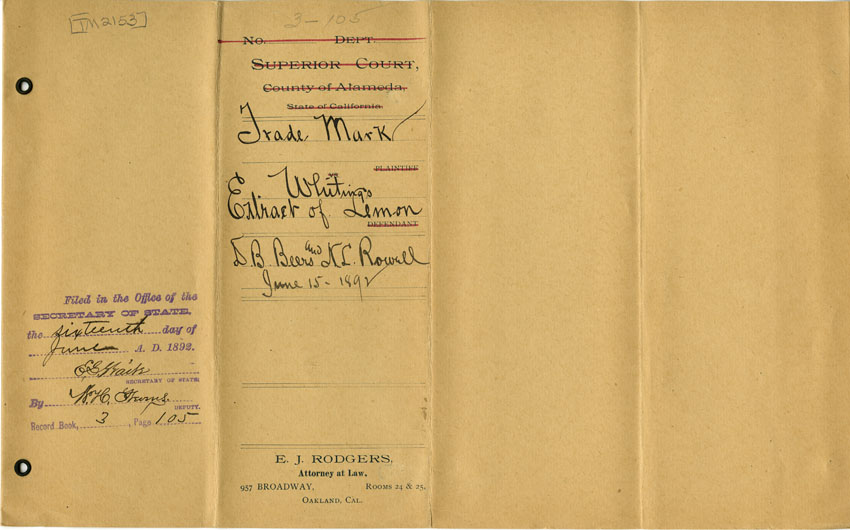 [TM2153]
3-105
No. Dept.
Superior Court,
County of Alameda,
State of California
Trade Mark
PLAINTIFF
Whiting's
Extract of Lemon
DEFENDANT
D. B. Beers and N. L. Rowell
June 15 - 1892
Filed in the Office of the
SECRETARY OF STATE,
the sixteenth day of
June A. D. 1892.
SECRETARY OF STATE
By W. H.
DEPUTY.
Record Book, 3, Page 105
E. J. RODGERS,
Attorney at Law,
957 BROADWAY, ROOMS 24 & 25,
OAKLAND, CAL.